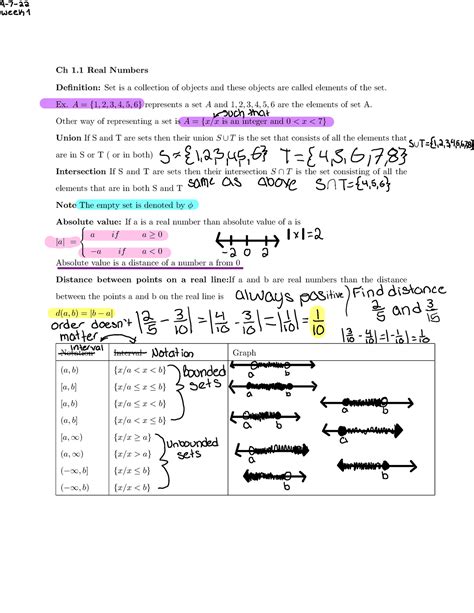 4-7-22
week 1
Ch 1.1 Real Numbers
Definition: Set is a collection of objects and these objects are called elements of the set.
Ex. A = {1, 2, 3, 4, 5, 6} represents a set A and 1, 2, 3, 4, 5, 6 are the elements of set A.
such that
Other way of representing a set is A = {x/x is an integer and 0 < x < 7}
Union If S and T are sets then their union S∪T is the set that consists of all the elements that
S∪T={1,2,3,4,5,6,7,8}
are in S or T ( or in both) S={1,2,3,4,5,6} T={4,5,6,7,8}
Intersection If S and T are sets then their intersection S∩T is the set consisting of all the
elements that are in both S and T same as above S∩T={4,5,6}
Note The empty set is denoted by ϕ
Absolute value: If a is a real number than absolute value of a is
|a| = { a if a ≥ 0
−a if a < 0
-2 0 2
|x|=2
Absolute value is a distance of a number a from 0
Distance between points on a real line:If a and b are real numbers than the distance
between the points a and b on the real line is always positive / Find distance
2/5 and 3/10
d(a, b) = |b − a|
order doesn't matter
|2/5 - 3/10| = |4/10 - 3/10| = |1/10| = 1/10
|3/10 - 4/10| = |-1/10| = 1/10
Notation interval Interval Notation Graph
(a, b) {x/a < x < b}
[a, b] {x/a ≤ x ≤ b}
[a, b) {x/a ≤ x < b}
(a, b] {x/a < x ≤ b}
Bounded sets
[a, ∞) {x/x ≥ a}
(a, ∞) {x/x > a}
(−∞, b] {x/x ≤ b}
(−∞, b) {x/x < b}
Unbounded sets
a b
a b
a b
a b
a
a
b
b